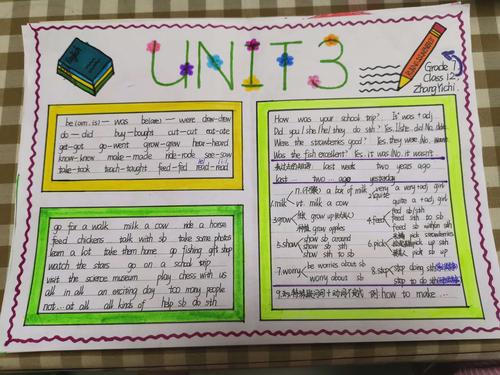 UNIT3
English
Grade 7.
Class 12.
Zhang Yichi.
be(am.is) — was be(are) — were draw-drew
do — did buy-bought cut-cut eat-ate
get-got go-went grow-grew hear-heard
know-knew make-made ride-rode see-saw
take-took teach-taught feed-fed read-read
go for a walk milk a cow ride a horse
feed chickens talk with sb take some photos
learn a lot take them home go fishing gift shop
watch the stars go on a school trip
visit the science museum play chess with us
all in all an exciting day too many people
not...at all all kinds of help sb do sth
How was your school trip? Is was + adj
Did you / she / he / they do sth? Yes. I did No.
Were the strawberries good? Yes. they were. No.
Was the fish excellent? Yes. it was. No. it wasn't.
last week two years ago
last two ... ago yesterday
1.milk n. a box of milk
vt. milk a cow
2.quite very a very + adj girl
quite a + adj girl
3.grow grow up
grow apples
4.feed feed sb/sth
feed sth to sb
feed sb with sth
5.show show sb around
show sb sth
show sth to sb
6.pick pick strawberries
pick up sth
pick sb up
7.worry be worries about sb
worry about sb
8.stop stop doing sth
stop to do sth
9. how to make ...